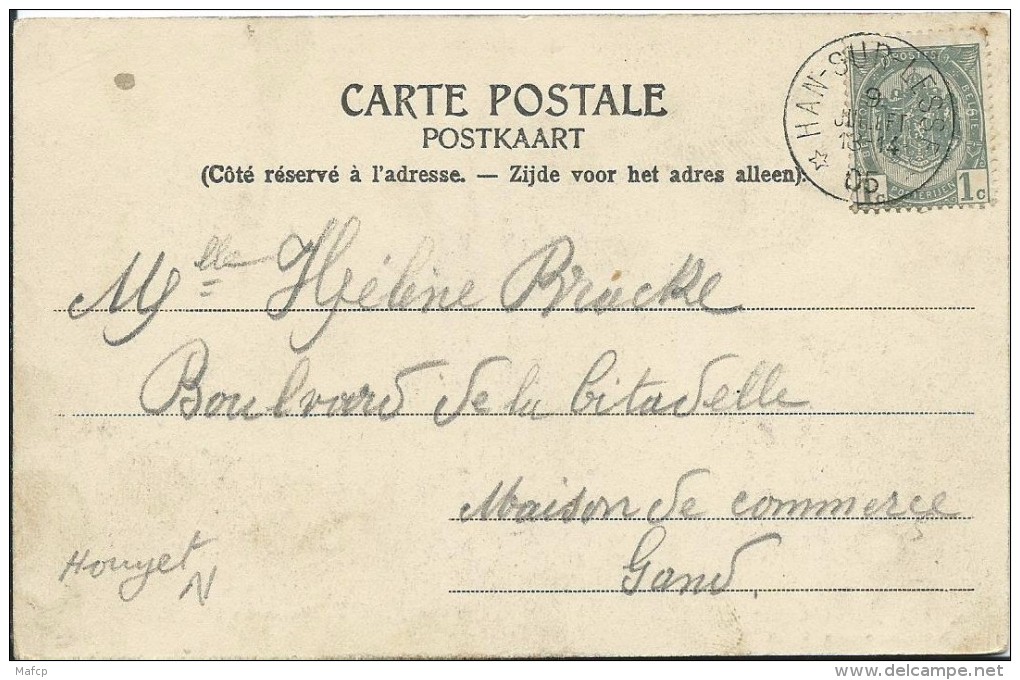 CARTE POSTALE
POSTKAART
(Côté réservé à l'adresse. — Zijde voor het adres alleen).
HAN-SUR-LESSE
9
JUILLET
13-14
05
POSTES
BELGIE
POSTERIJEN
1c 1c
Mlle Hélène Bracke
Boulvard de la Citadelle
Maison de commerce
Gand
Houyet
N
Mafcp
delcampe.net